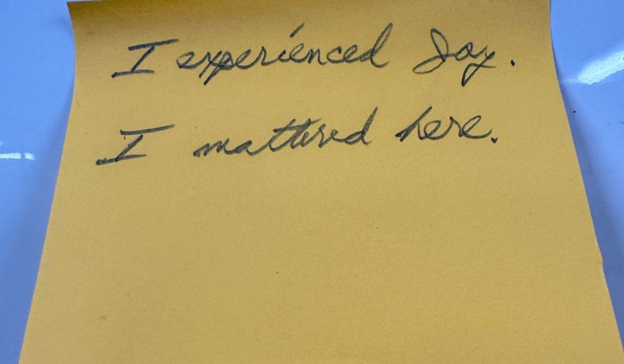 I experienced Joy.
I mattered here.